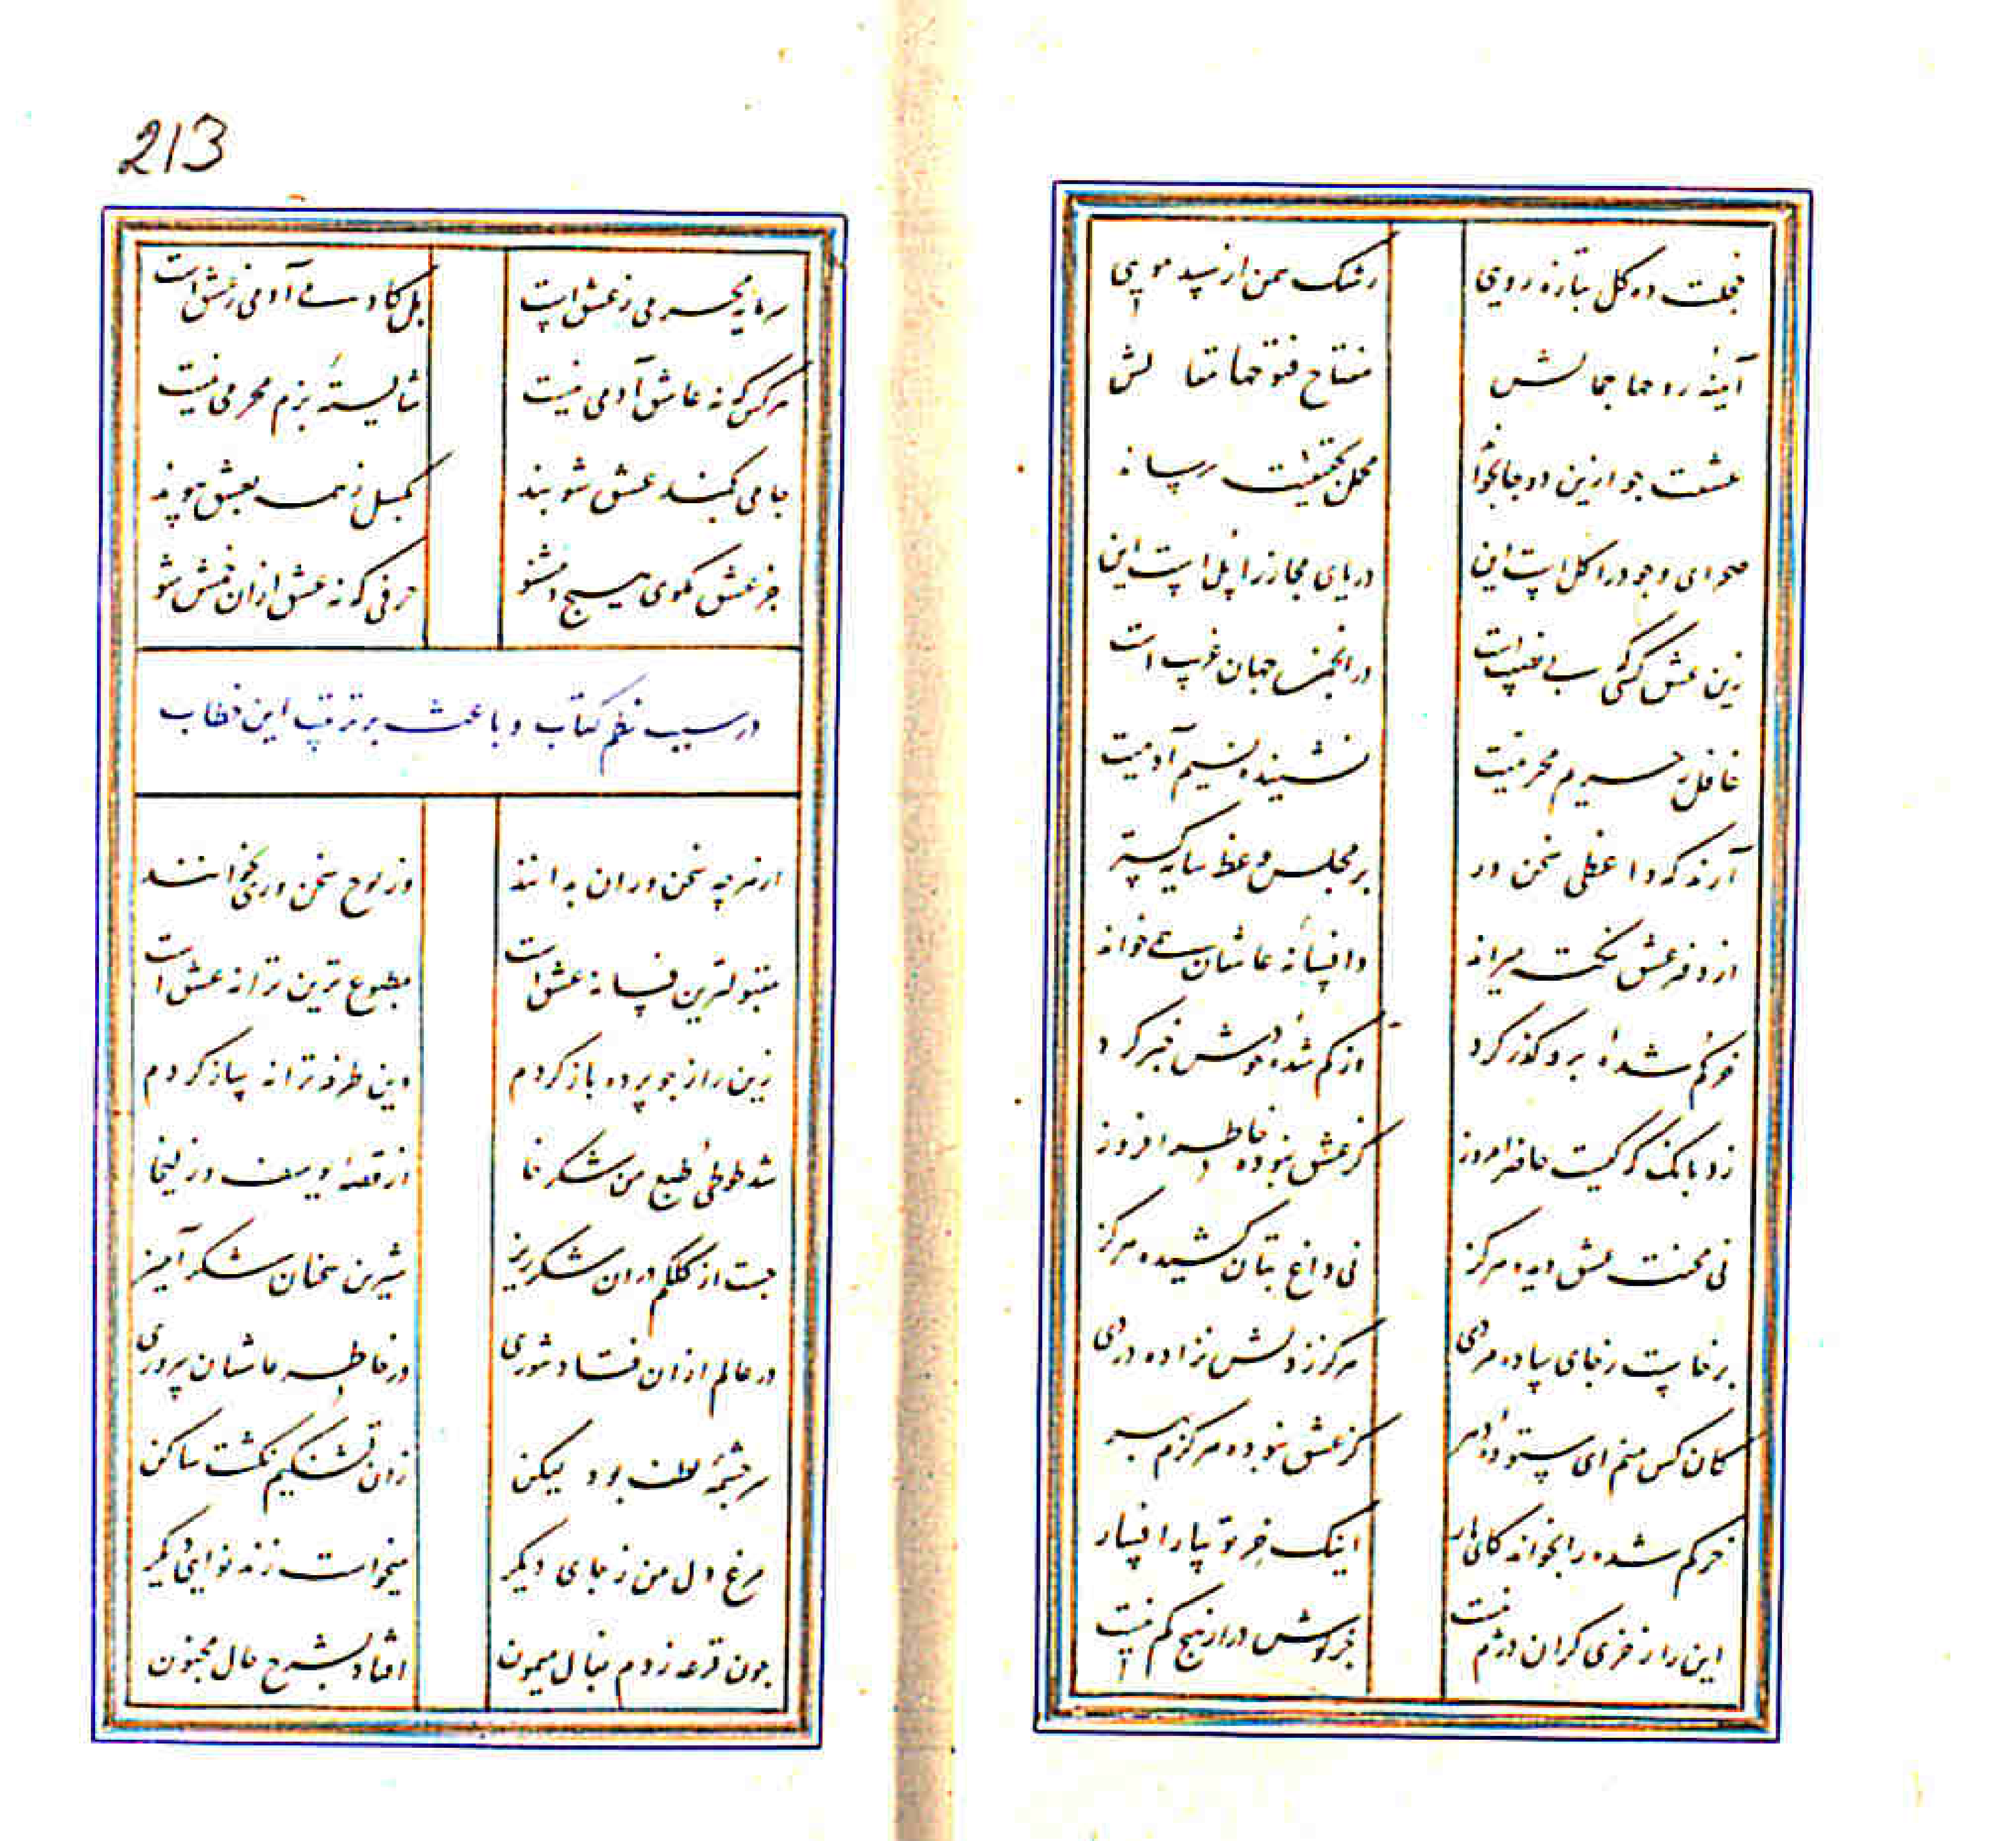 خجلت ده گل بتازه رویی
رشک سمن از سپید مویی
آینهٔ روحها جمالش
مفتاح فتوحها مقالش
عشقت جو ازین دو جا بجا
محمل بحقیقت رساند
صحرای وجود را گل است این
دریای مجاز را پل است این
زین عشق کسی که بی نصیب است
در انجمن جهان غریب است
غافل ز حریم محرمیت
نشنیده نسیم آدمیت
آرند که واعظی سخن ور
بر مجلس وعظ سایه گستر
از دفتر عشق نکته میراند
وافسانهٔ عاشقان همی خواند
خر گم شدهٔ برو گذر کرد
از گم شدهٔ خودش خبر کرد
زد بانگ که کیست حاضر امروز
کز عشق نبوده خاطر افروز
نی محنت عشق دیده هرگز
نی داغ بتان کشیده هرگز
برخاست ز جای ساده مردی
هرگز ز دلش نزاده دردی
کان کس منم ای ستوده دهر
کز عشق نبوده هرگزم بهر
خر گم شده را بخواند کای یار
اینک خر تو بیار افسار
این را ز خری کران درم نیست
جز گوش دراز هیچ کم نیست
213
سرمایهٔ محرمی ز عشق است
بل کادمی آدمی ز عشق است
هر کس که نه عاشق آدمی نیست
شایستهٔ بزم محرمی نیست
جامی بکمند عشق شو بند
بگسل ز همه بعشق پیوند
جز عشق مگوی هیچ و مشنو
حرفی که نه عشق ازان خمش شو
در سبب نظم کتاب و باعث بر ترتیب این خطاب
از هر چه سخن وران بدانند
وز لوح سخن وری بخوانند
مقبولترین فسانه عشق است
مطبوع ترین ترانه عشق است
زین راز جو پرده باز کردم
وین طرفه ترانه ساز کردم
شد طوطی طبع من شکر خا
از قصهٔ یوسف و زلیخا
جست از کلکم دران شکرریز
شیرین سخنان شکر آمیز
در عالم ازان فتاد شوری
در خاطر عاشقان سروری
سرچشمهٔ لطف بود لیکن
زان تشنگیم نگشت ساکن
مرغ دل من ز جای دیگر
میخواست زند نوایی دیگر
جون قرعه زدم بفال میمون
افتاد بشرح حال مجنون